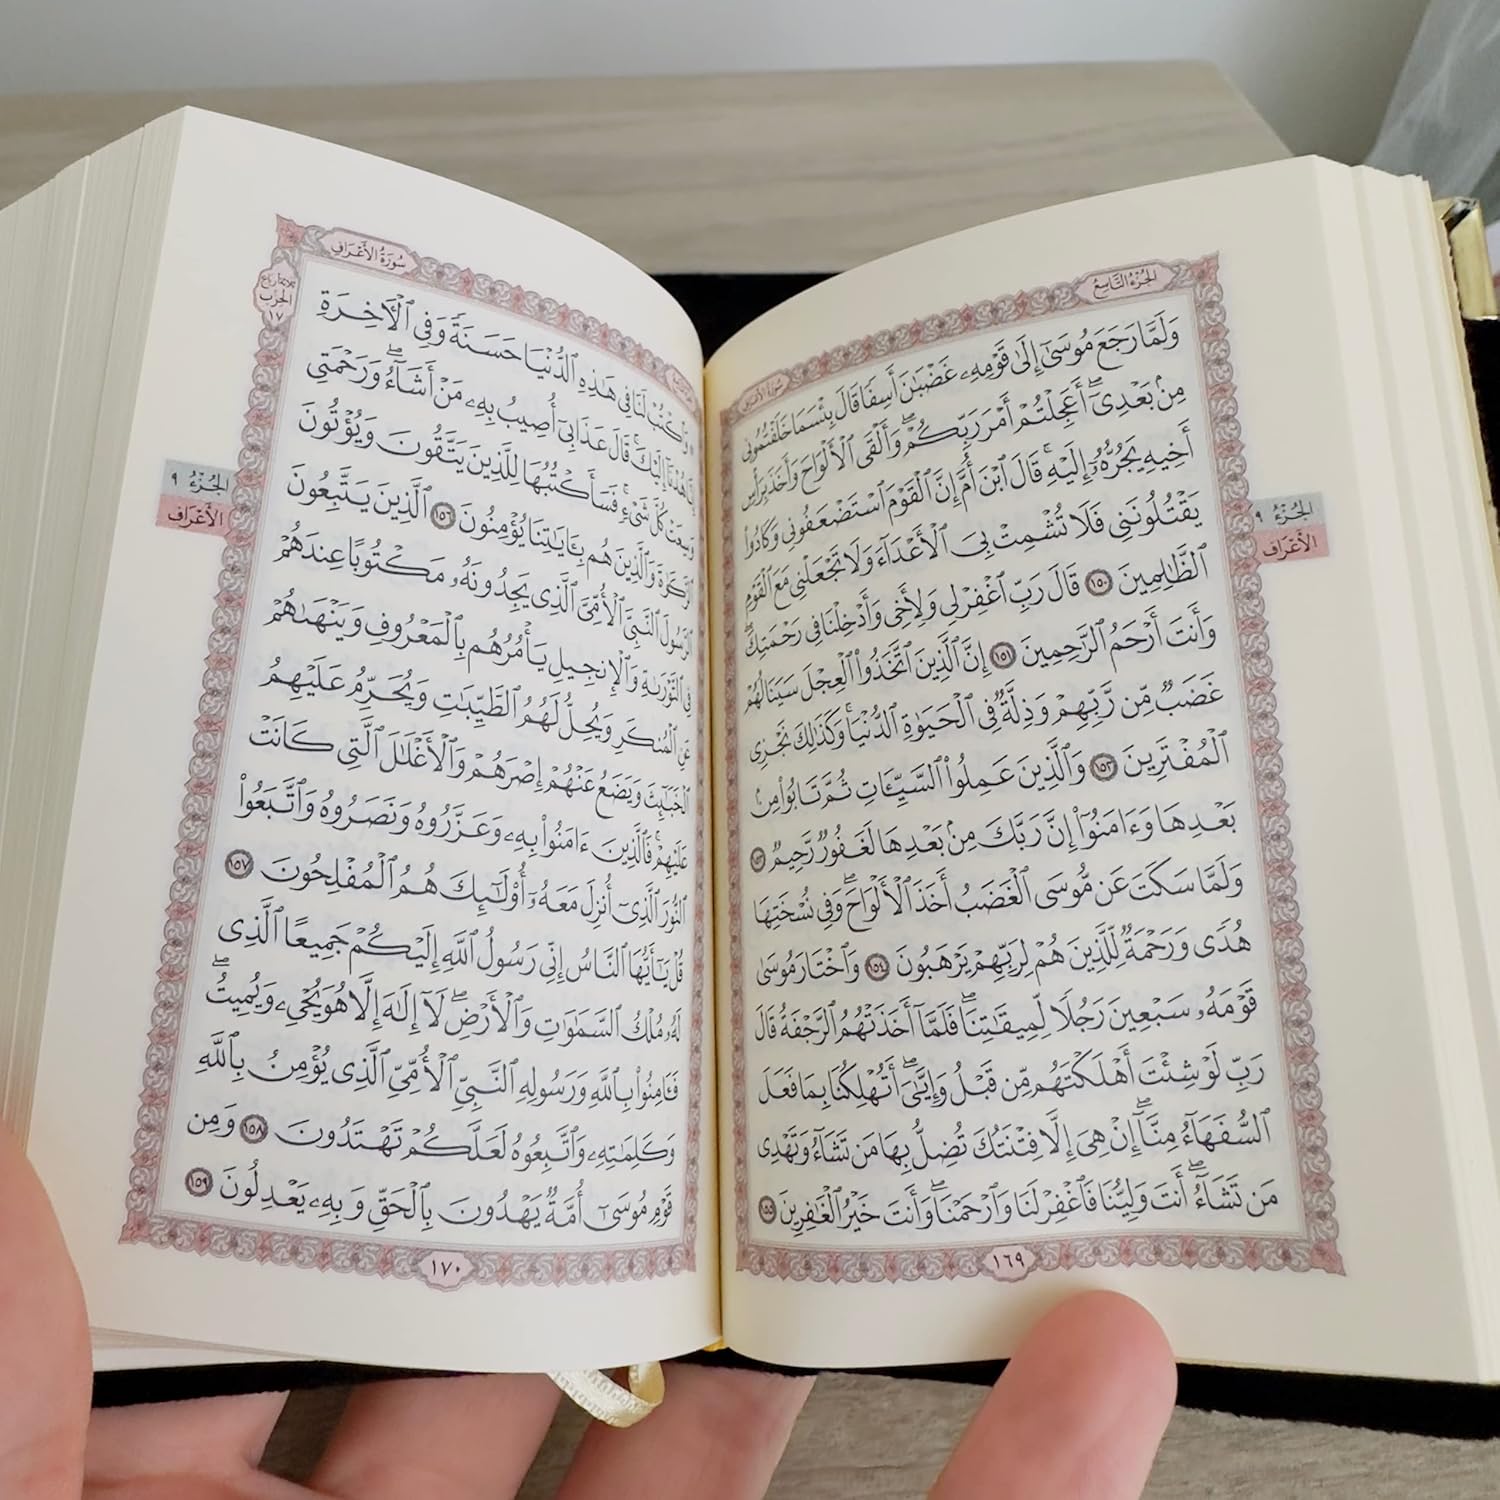 الجُزْءُ التَّاسِعُ
سُورَةُ الأَعْرَافِ
وَلَمَّا رَجَعَ مُوسَىٰٓ إِلَىٰ قَوْمِهِۦ غَضْبَٰنَ أَسِفٗا قَالَ بِئْسَمَا خَلَفْتُمُونِي
مِنۢ بَعْدِيٓۖ أَعَجِلْتُمْ أَمْرَ رَبِّكُمْۖ وَأَلْقَى ٱلْأَلْوَاحَ وَأَخَذَ بِرَأْسِ
أَخِيهِ يَجُرُّهُۥٓ إِلَيْهِۚ قَالَ ٱبْنَ أُمَّ إِنَّ ٱلْقَوْمَ ٱسْتَضْعَفُونِي وَكَادُواْ
يَقْتُلُونَنِي فَلَا تُشْمِتْ بِيَ ٱلْأَعْدَآءَ وَلَا تَجْعَلْنِي مَعَ ٱلْقَوْمِ
ٱلظَّٰلِمِينَ ١٥٠ قَالَ رَبِّ ٱغْفِرْ لِي وَلِأَخِي وَأَدْخِلْنَا فِي رَحْمَتِكَۖ
وَأَنتَ أَرْحَمُ ٱلرَّٰحِمِينَ ١٥١ إِنَّ ٱلَّذِينَ ٱتَّخَذُواْ ٱلْعِجْلَ سَيَنَالُهُمْ
غَضَبٞ مِّن رَّبِّهِمْ وَذِلَّةٞ فِي ٱلْحَيَوٰةِ ٱلدُّنْيَاۚ وَكَذَٰلِكَ نَجْزِي
ٱلْمُفْتَرِينَ ١٥٢ وَٱلَّذِينَ عَمِلُواْ ٱلسَّيِّـَٔاتِ ثُمَّ تَابُواْ مِنۢ
بَعْدِهَا وَءَامَنُوٓاْ إِنَّ رَبَّكَ مِنۢ بَعْدِهَا لَغَفُورٞ رَّحِيمٞ ١٥٣
وَلَمَّا سَكَتَ عَن مُّوسَى ٱلْغَضَبُ أَخَذَ ٱلْأَلْوَاحَۖ وَفِي نُسْخَتِهَا
هُدٗى وَرَحْمَةٞ لِّلَّذِينَ هُمْ لِرَبِّهِمْ يَرْهَبُونَ ١٥٤ وَٱخْتَارَ مُوسَىٰ
قَوْمَهُۥ سَبْعِينَ رَجُلٗا لِّمِيقَٰتِنَاۖ فَلَمَّآ أَخَذَتْهُمُ ٱلرَّجْفَةُ قَالَ
رَبِّ لَوْ شِئْتَ أَهْلَكْتَهُم مِّن قَبْلُ وَإِيَّٰيَۖ أَتُهْلِكُنَا بِمَا فَعَلَ
ٱلسُّفَهَآءُ مِنَّآۖ إِنْ هِيَ إِلَّا فِتْنَتُكَ تُضِلُّ بِهَا مَن تَشَآءُ وَتَهْدِي
مَن تَشَآءُۖ أَنتَ وَلِيُّنَا فَٱغْفِرْ لَنَا وَٱرْحَمْنَاۖ وَأَنتَ خَيْرُ ٱلْغَٰفِرِينَ ١٥٥
١٦٩
الجُزْءُ ٩
الأَعْرَافِ
سُورَةُ الأَعْرَافِ
ثلاثة أرباع
الحِزْب
١٧
۞ وَٱكْتُبْ لَنَا فِي هَٰذِهِ ٱلدُّنْيَا حَسَنَةٗ وَفِي ٱلْأٓخِرَةِ
إِنَّا هُدْنَآ إِلَيْكَۚ قَالَ عَذَابِيٓ أُصِيبُ بِهِۦ مَنْ أَشَآءُۖ وَرَحْمَتِي
وَسِعَتْ كُلَّ شَيْءٖۚ فَسَأَكْتُبُهَا لِلَّذِينَ يَتَّقُونَ وَيُؤْتُونَ
ٱلزَّكَوٰةَ وَٱلَّذِينَ هُم بِـَٔايَٰتِنَا يُؤْمِنُونَ ١٥٦ ٱلَّذِينَ يَتَّبِعُونَ
ٱلرَّسُولَ ٱلنَّبِيَّ ٱلْأُمِّيَّ ٱلَّذِي يَجِدُونَهُۥ مَكْتُوبًا عِندَهُمْ
فِي ٱلتَّوْرَىٰةِ وَٱلْإِنجِيلِ يَأْمُرُهُم بِٱلْمَعْرُوفِ وَيَنْهَىٰهُمْ
عَنِ ٱلْمُنكَرِ وَيُحِلُّ لَهُمُ ٱلطَّيِّبَٰتِ وَيُحَرِّمُ عَلَيْهِمُ
ٱلْخَبَٰٓئِثَ وَيَضَعُ عَنْهُمْ إِصْرَهُمْ وَٱلْأَغْلَٰلَ ٱلَّتِي كَانَتْ
عَلَيْهِمْۚ فَٱلَّذِينَ ءَامَنُواْ بِهِۦ وَعَزَّرُوهُ وَنَصَرُوهُ وَٱتَّبَعُواْ
ٱلنُّورَ ٱلَّذِيٓ أُنزِلَ مَعَهُۥٓ أُوْلَٰٓئِكَ هُمُ ٱلْمُفْلِحُونَ ١٥٧
قُلْ يَٰٓأَيُّهَا ٱلنَّاسُ إِنِّي رَسُولُ ٱللَّهِ إِلَيْكُمْ جَمِيعًا ٱلَّذِي
لَهُۥ مُلْكُ ٱلسَّمَٰوَٰتِ وَٱلْأَرْضِۖ لَآ إِلَٰهَ إِلَّا هُوَ يُحْيِۦ وَيُمِيتُۖ
فَـَٔامِنُواْ بِٱللَّهِ وَرَسُولِهِ ٱلنَّبِيِّ ٱلْأُمِّيِّ ٱلَّذِي يُؤْمِنُ بِٱللَّهِ
وَكَلِمَٰتِهِۦ وَٱتَّبِعُوهُ لَعَلَّكُمْ تَهْتَدُونَ ١٥٨ وَمِن
قَوْمِ مُوسَىٰٓ أُمَّةٞ يَهْدُونَ بِٱلْحَقِّ وَبِهِۦ يَعْدِلُونَ ١٥٩
١٧٠
الجُزْءُ ٩
الأَعْرَافِ